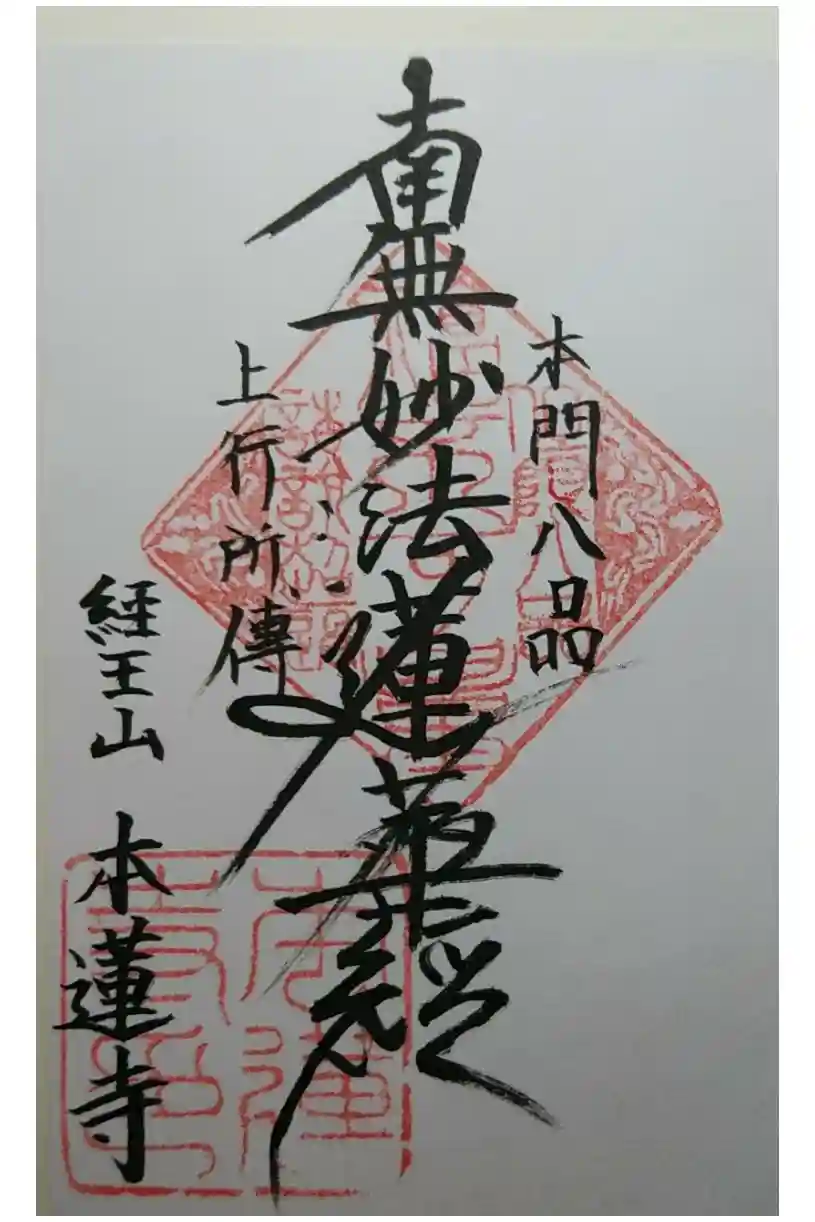 本門八品
南無妙法蓮華経
上行所傳
経王山 本蓮寺